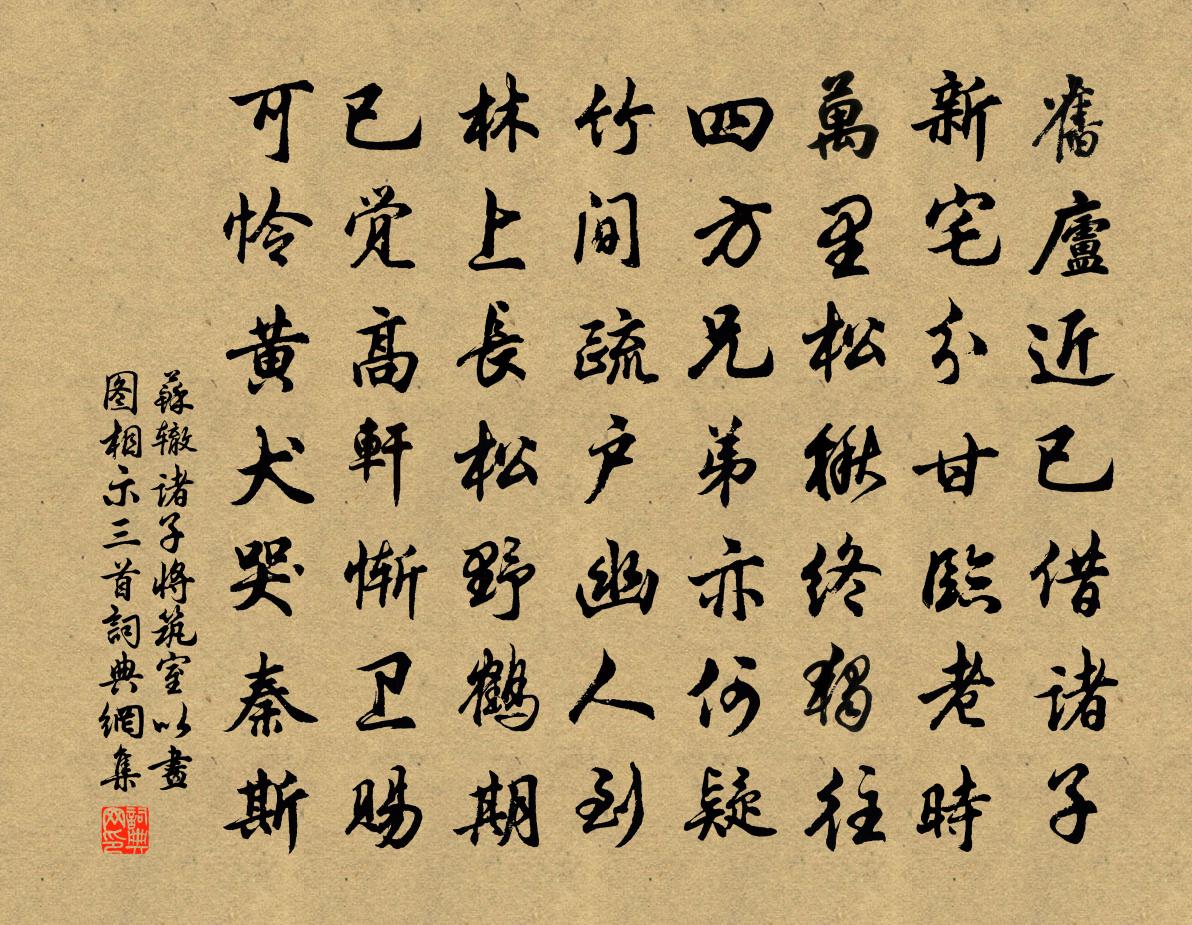 舊廬近已借諸子
新宅分甘臨老時
萬里松楸終獨往
四方兄弟亦何疑
竹间疏户幽人到
林上長松野鶴期
已覺高軒慚卫賜
可怜黄犬哭秦斯
蘇辙诸子將筑室以畫
图相示三首詞典網集
詞典
网印